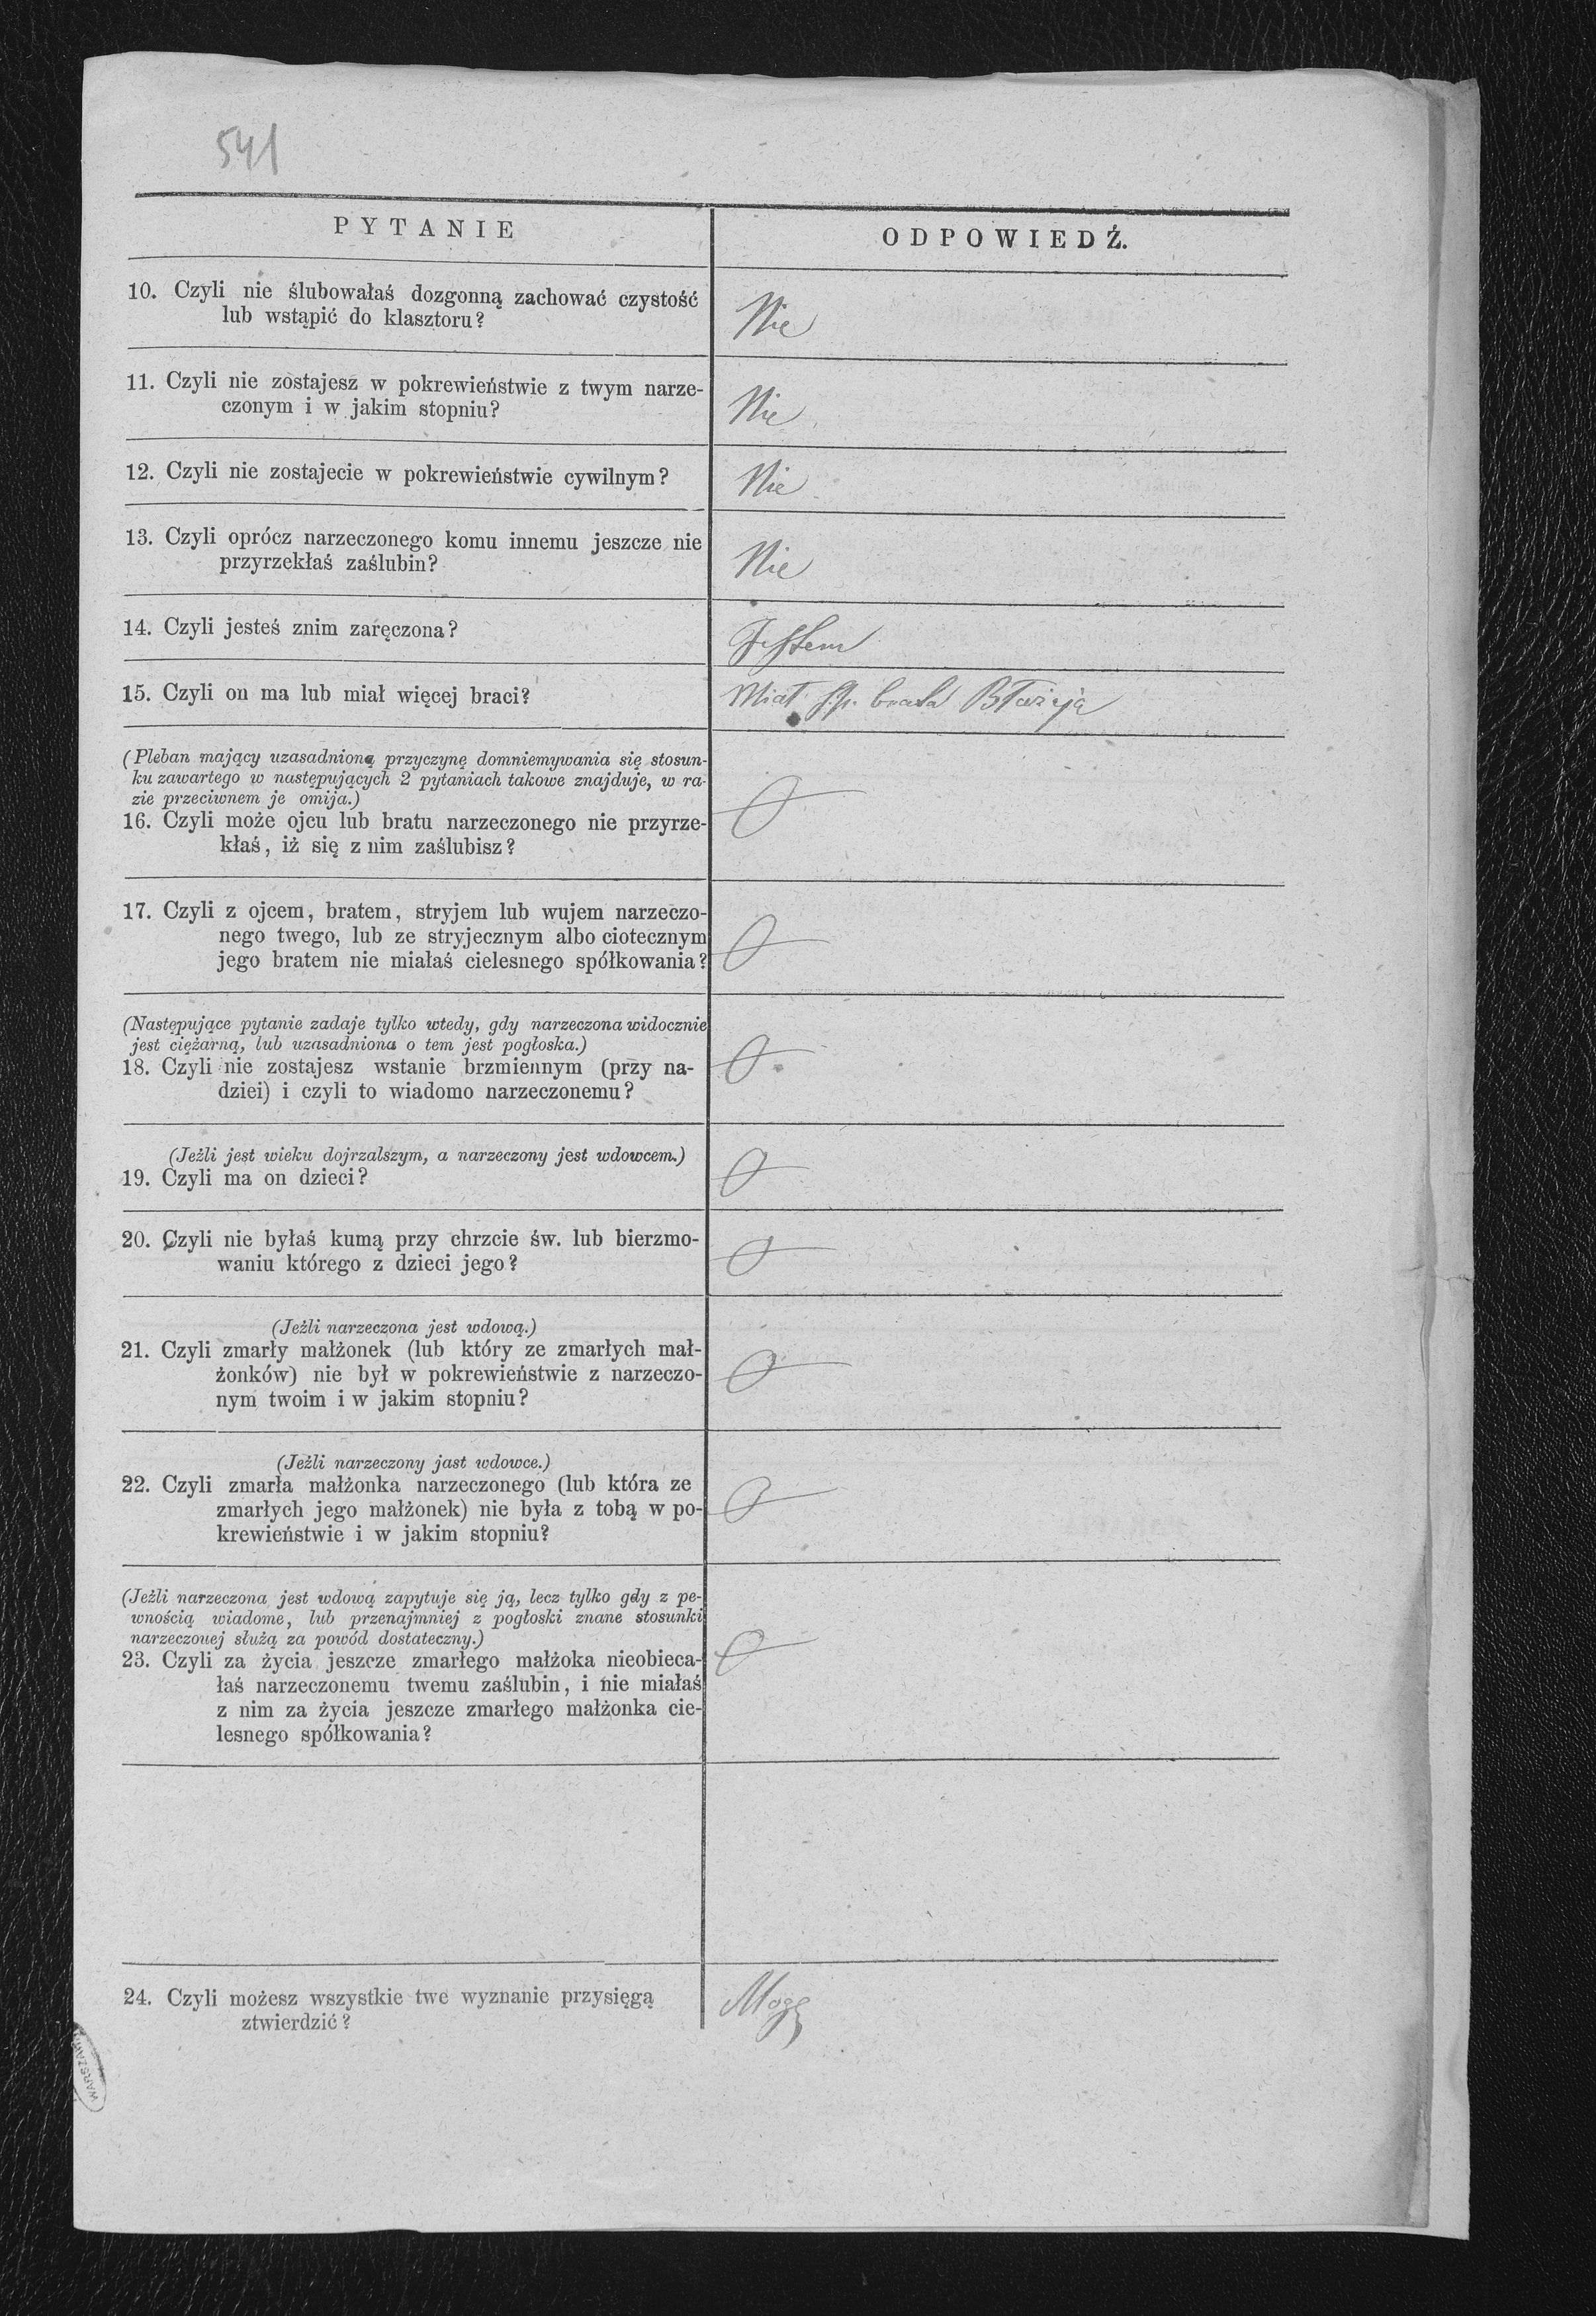 541
PYTANIE
ODPOWIEDŹ.
10. Czyli nie ślubowałaś dozgonną zachować czystość
lub wstąpić do klasztoru?
Nie
11. Czyli nie zostajesz w pokrewieństwie z twym narze-
czonym i w jakim stopniu?
Nie
12. Czyli nie zostajecie w pokrewieństwie cywilnym?
Nie
13. Czyli oprócz narzeczonego komu innemu jeszcze nie
przyrzekłaś zaślubin?
Nie
14. Czyli jesteś znim zaręczona?
Jestem
15. Czyli on ma lub miał więcej braci?
Miał ś.p. brata Błażeja
(Pleban mający uzasadnioną przyczynę domniemywania się stosun-
ku zawartego w następujących 2 pytaniach takowe znajduje, w ra-
zie przeciwnem je omija.)
16. Czyli może ojcu lub bratu narzeczonego nie przyrze-
kłaś, iż się z nim zaślubisz?
0
17. Czyli z ojcem, bratem, stryjem lub wujem narzeczo-
nego twego, lub ze stryjecznym albo ciotecznym
jego bratem nie miałaś cielesnego spółkowania?
0
(Następujące pytanie zadaje tylko wtedy, gdy narzeczona widocznie
jest ciężarną, lub uzasadniona o tem jest pogłoska.)
18. Czyli nie zostajesz wstanie brzmiennym (przy na-
dziei) i czyli to wiadomo narzeczonemu?
0
(Jeżli jest wieku dojrzalszym, a narzeczony jest wdowcem.)
19. Czyli ma on dzieci?
0
20. Czyli nie byłaś kumą przy chrzcie św. lub bierzmo-
waniu którego z dzieci jego?
0
(Jeżli narzeczona jest wdową.)
21. Czyli zmarły małżonek (lub który ze zmarłych mał-
żonków) nie był w pokrewieństwie z narzeczo-
nym twoim i w jakim stopniu?
0
(Jeżli narzeczony jast wdowce.)
22. Czyli zmarła małżonka narzeczonego (lub która ze
zmarłych jego małżonek) nie była z tobą w po-
krewieństwie i w jakim stopniu?
0
(Jeżli narzeczona jest wdową zapytuje się ją, lecz tylko gdy z pe-
wnością wiadome, lub przenajmniej z pogłoski znane stosunki
narzeczouej służą za powód dostateczny.)
23. Czyli za życia jeszcze zmarłego małżoka nieobieca-
łaś narzeczonemu twemu zaślubin, i nie miałaś
z nim za życia jeszcze zmarłego małżonka cie-
lesnego spółkowania?
0
24. Czyli możesz wszystkie twe wyznanie przysięgą
ztwierdzić?
Mogę